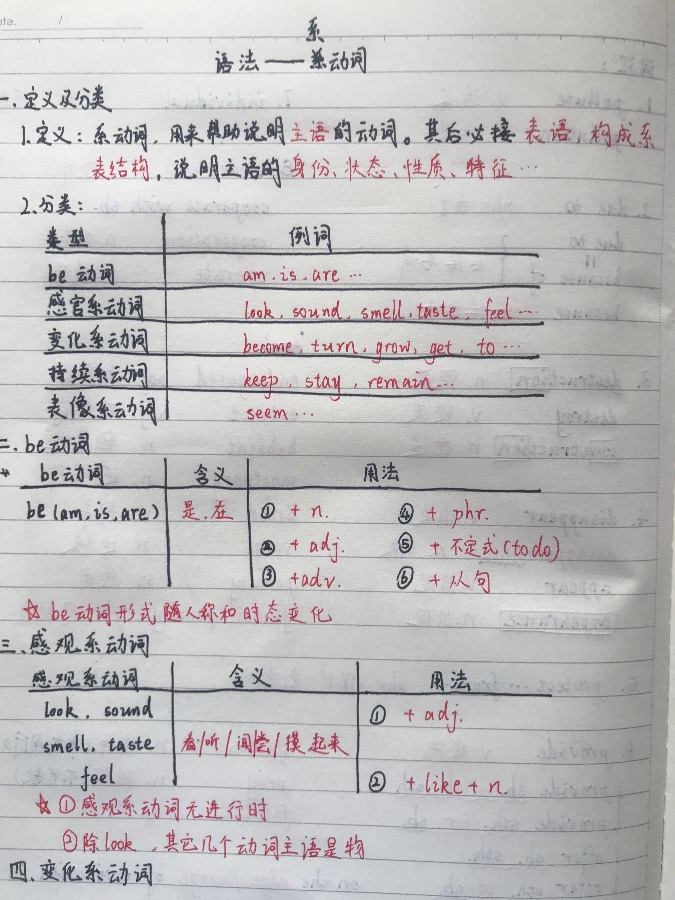 ate. /
系
语法——系动词
一.定义及分类
1.定义：系动词，用来帮助说明主语的动词。其后必接表语，构成系
表结构，说明主语的身份、状态、性质、特征…
2.分类：
类型 例词
be动词 am.is.are…
感官系动词 look, sound, smell, taste, feel…
变化系动词 become, turn, grow, get, to…
持续系动词 keep, stay, remain…
表像系动词 seem…
二.be动词
be动词 含义 用法
be(am,is,are) 是.在 ① + n. ④ + phr.
② + adj. ⑤ + 不定式(to do)
③ +adv. ⑥ + 从句
☆ be动词形式随人称和时态变化
三.感观系动词
感观系动词 含义 用法
look, sound ① + adj.
smell, taste 看/听/闻尝/摸起来
feel ② + like + n.
☆ ①感观系动词无进行时
②除look，其它几个动词主语是物
四.变化系动词